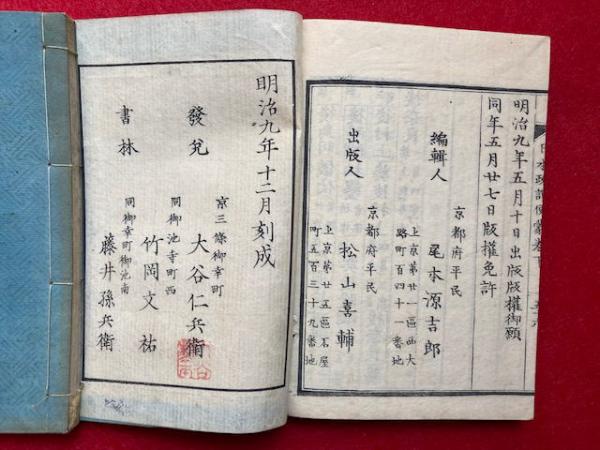 明治九年五月十日出版版權御願
同年五月廿七日版權免許
京都府平民
編輯人
尾本源吉郎
上京第廿一區西大
路町百四十一番地
京都府平民
出版人
松山喜輔
上京第廿五區石屋
町五百三十九番地
明治九年十二月刻成
京三條御幸町
發兌
大谷仁兵衛
同御池寺町西
竹岡文祐
書林
同御幸町御池南
藤井孫兵衛